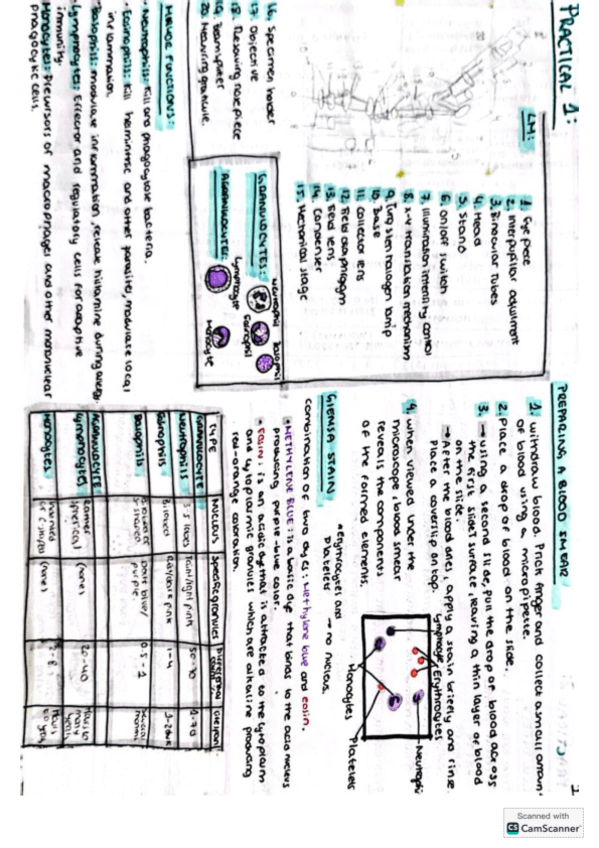 PRACTICAL 1:
LM:
1. Eye piece
2. Interpupilar adjustment
3. Binocular Tubes
4. Head
5. Stand
6. on/off switch
7. Illumination intensity control
8. x-y translation mechanism
9. Tungsten halogen lamp
10. Base
11. Collector lens
12. Field diaphragm
13. Field lens
14. Condenser
15. Mechanical stage
16. Specimen holder
17. Objective
18. Revolving nosepiece
19. Beamsplitter
20. Measuring graticule.
GRANULOCYTES:
Neutrophil
Basophil
Eosinophil
AGRANULOCYTES:
Lymphocyte
Monocyte
MAJOR FUNCTIONS:
Neutrophils: Kill and phagocytose bacteria.
Eosinophils: Kill helminthic and other parasites, modulate local
inflammation.
Basophils: modulate inflammation, release histamine during allergy.
Lymphocytes: Effector and regulatory cells for adaptive
immunity.
Monocytes: Precursors of macrophages and other mononuclear
phagocytic cells.
PREPARING A BLOOD SMEAR
1. Withdraw blood. Prick finger and collect a small amount
of blood using a micropipette.
2. Place a drop of blood on the slide.
3. → Using a second slide, pull the drop of blood across
the first slide's surface, leaving a thin layer of blood
on the slide.
→ After the blood dries, apply a stain briefly and rinse.
Place a coverslip on top.
4. when viewed under the
microscope, blood smear
reveals the components
of the formed elements.
Lymphocyte
Erythrocytes
Neutrophil
Monocytes
Platelets
* Erythrocytes and
Platelets → no nucleus.
GIEMSA STAIN
combination of two dyes: Methylene blue and eosin.
• METHYLENE BLUE: is a basic dye that binds to the acid nucleus
producing purple-blue color.
• EOSIN: is an acidic dye that is attracted to the cytoplasm
and cytoplasmic granules which are alkaline producing
red-orange coloration.
TYPE NUCLEUS Specific granules Differential count
GRANULOCYTE
Neutrophils 3-5 lobes Faint/light pink 50-70
Eosinophils Bilobed Red/dark pink 1-4
Basophils Bilobed or S-shaped Dark blue/ purple. 0.5-1
AGRANULOCYTE
Lymphocytes Rather spherical (none) 20-40
Monocytes (none) 2-8
2
Scanned with
CS CamScanner